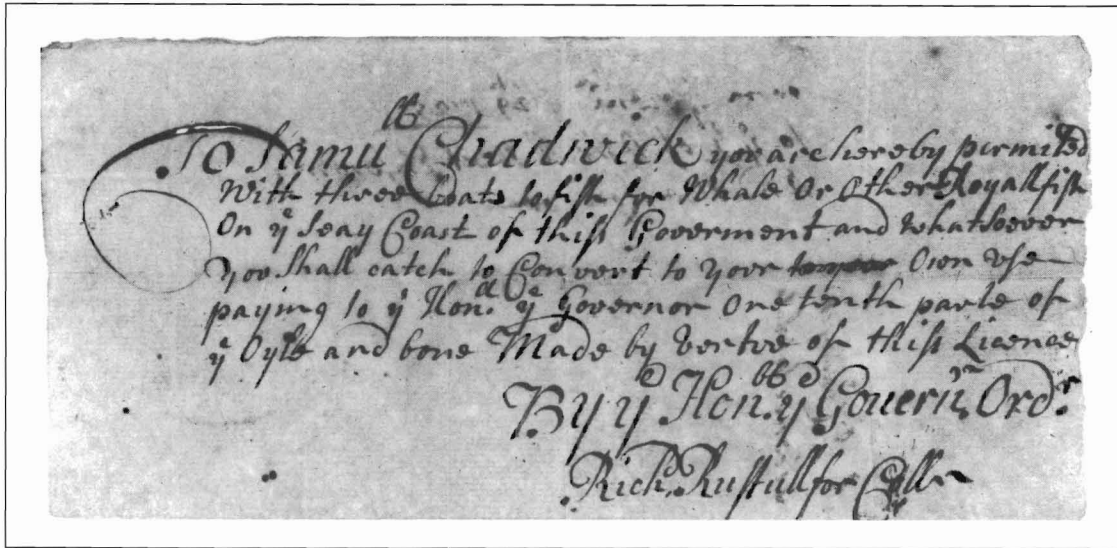 To Samu:ll Chadwick you are hereby permited
With three boats to fish for Whale Or Other Royall fish
On ye Seay Coast of this Goverment and whatsoever
you Shall catch to Convert to your Own Vse
paying to ye Hon.ll ye Governor One tenth parte of
ye Oyle and bone Made by Vertve of this Licence
By ye Hon.bl ye Gouernrs Ordr
Rich. Rustull for Cllr